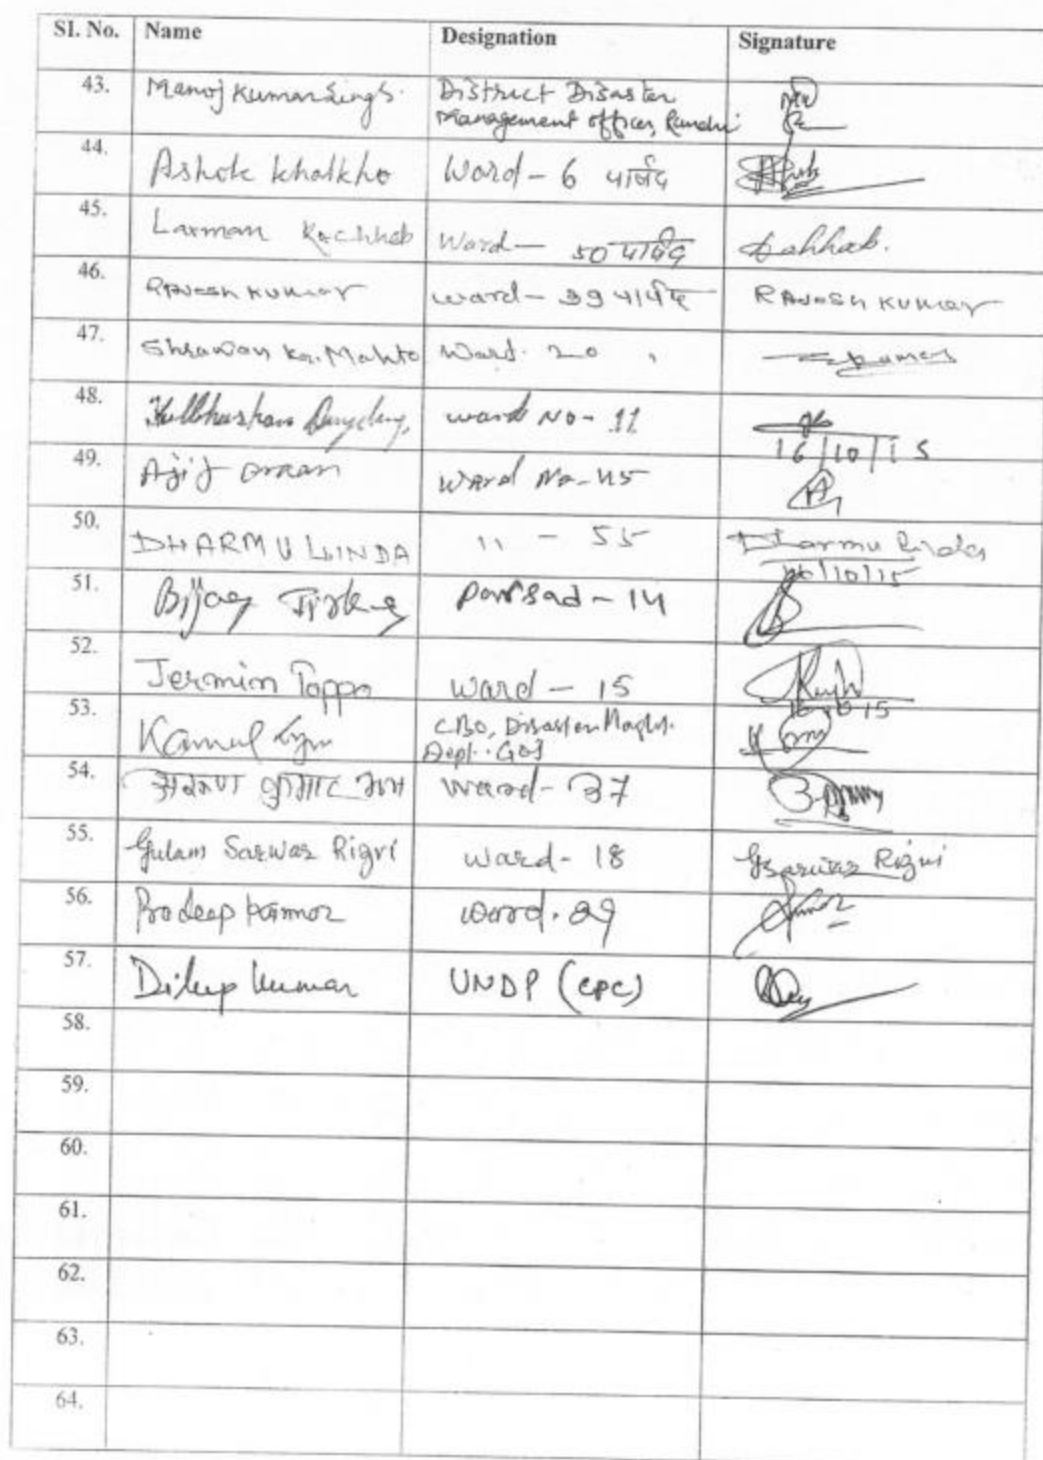 Sl. No. Name Designation Signature
43. Manoj Kumar Singh District Disaster
Management officer, Ranchi
44. Ashok Khalkho Ward - 6 पार्षद
45. Laxman Kachhab Ward — 50 पार्षद Kachhab.
46. RAJESH KUMAR ward - 39 पार्षद RAJESH KUMAR
47. Shrawan Kr. Mahto Ward. 20 "
48. Kulbhushan Dungdung, ward No - 11
16/10/15
49. Ajit Oraon Ward No - 45
50. DHARMU LINDA 11 - 55 Dharmu Linda
16/10/15
51. Bijay Tirkey Parsad - 14
52. Jermin Toppo Ward - 15
16.10.15
53. Kamal CBO, Disaster Magt.
Dept. GOJ
54. कुमार ward - 37
55. Gulam Sarwar Rizvi ward - 18 GSarwar Rizvi
56. Pradeep ward. 29
57. Dilip kumar UNDP (CPC)
58.
59.
60.
61.
62.
63.
64.